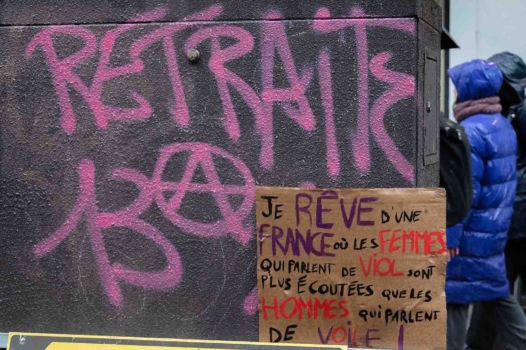 RETRAITE
JE RÊVE D'UNE
FRANCE OÙ LES FEMMES
QUI PARLENT DE VIOL SONT
PLUS ÉCOUTÉES QUE LES
HOMMES QUI PARLENT
DE VOILE !